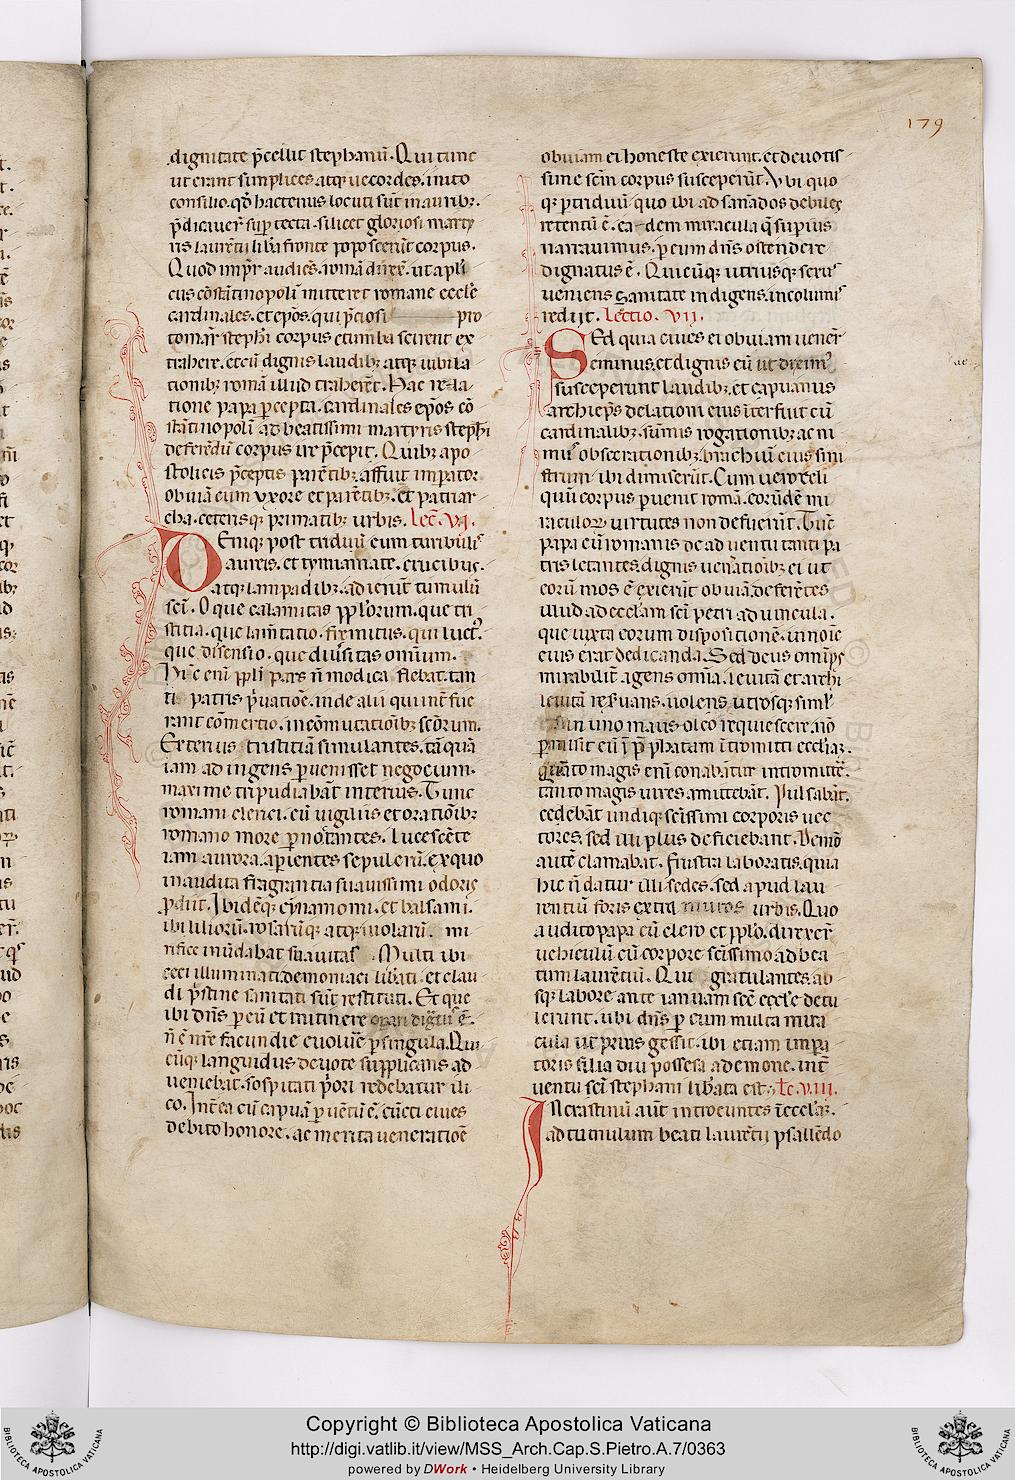 179
dignitate p̄cellit stephanū. Qui tunc
ut erant simplices atq; uecordes. inito
consilio. qđ hactenus locuti sūt in aurib;.
p̄dicauer̄ sup tecta. silicet gloriosi marty
ris laurētii libā fronte poposcerūt corpus.
Quod impr̄ audiēs. romā direx̄. ut apli
cus cōstātinopolū mitteret romane eccl'e
cardinales. et epos. qui p̄ciosi pro
tomar̄ stephi corpus et umba scirent ex
trahere. et cū dignis laudib; atq; iubila
tionib; romā illud traherēt. Hac rela
tione papa p̄cepta. cardinales epos cō
stātinopolū ad beatissimi martyris stephi
deferēdū corpus ire p̄cepit. Quib; apo
stolicis p̄ceptis parētib; affuit impator
obuiā cum uxore et parētib;. et patriar
cha. ceterisq; primatib; urbis. lec̄. VI.
Denique post triduū cum turibulis
aureis. et tymiamate. crucibus.
atq; lampadib;. adierūt tumulū
sc̄i. O que calamitas pplorum. que tri
stitia. que lam̄tatio. fremitus. qui luct9.
que dissensio. que diuersitas omīum.
Hinc enī ppli pars ñ modica flebat. tan
ti patris p̄uatiōe. inde alii quint̄ fue
rant cōmertio. in cōmutatiōib; sc̄orum.
Exterius tristitiā simulantes. tā quā
iam ad ingens puenisset negocium.
maxime tripudiabāt interius. Tunc
romani clerici. cū uigiliis et oratiōib;
romano more pnoctantes. lucescēte
iam aurora. apientes sepulcrū. ex quo
inaudita fragrantia suauissimi odoris
pdiit. Ibidēq; cynamomi. et balsami.
ibi liliorū. rosarūq; atq; uiolarū. mi
rifice inūdabat suauitas. Multi ibi
ceci illuminati. demoniaci libati. et clau
di p̄stine sanitati sūt restituti. Et que
ibi dn̄s p eū et in itinere opari dignat9 ē.
ñ ē nr̄e facundie euoluere p singula. Qui
cūq; languidus deuote supplicans ad
ueniebat. sospitati p̄ori redebatur ili
co. Int̄ea cū capuā p uētū ē. cūcti ciues
debito honore. ac merita ueneratiōe
obuiam ei honeste exierunt. et deuotis
sime sc̄m corpus susceperūt. Ubi quo
q; p triduū quo ibi ad sanādos debiles
retentū ē. eadem miracula q̄ supius
narrauimus. p eum dn̄s ostendere
dignatus ē. Quicūq; utriusq; sexus
ueniens sanitate indigens. incolumis
redijt. Lectio. VII.
Sed quia ciues ei obuiam uener̄
Seminus. et dignis eū ut diximus
susceperunt laudib;. et capuanus
archiep̄s delationi eius īterfuit cū
cardinalib;. sūmis rogationib; ac ni
mis obsecrationib; brachiū eius sini
strum ibi dimiserūt. Cum uero reli
quū corpus puenit romā. eorūdē mi
raculoꝝ uirtutes non defuerūt. Tūc
papa cū romanis de aduentu tanti pa
tris letantes. dignis ueneratiōib; ei ut
eorū mos ē exierūt obuiā. deferētes
illud ad eccl'am sc̄i petri ad uincula.
que iuxta eorum dispositionē. in noīe
eius erat dedicanda. Sed deus omīps
mirabilit̄ agens omīa. leuitā et archi
leuitā reseruans. uolens utrosq; simł
in uno maris oleo requiescere. nō
pmisit eū ī p̄phatam ītromitti eccłiaȝ.
Quāto magis enī conabātur intromittē.
tanto magis uires amittebāt. Pulsabāt.
cedebāt undiq; sc̄issimi corporis uec
tores. sed illi plus deficiebant. Demō
autē clamabat. frustra laboratis. quia
hic ñ datur illi sedes. sed apud lau
rentiū foris extra muros urbis. Quo
audito papa cū clero et pplo. direxer̄
uehiculū cū corpore sc̄issimo ad bea
tum laurētiū. Qui gratulantes. ab
sq; labore ante ianuam sc̄e eccl'e detu
lerunt. ubi dn̄s p eum multa mira
cula ut prius gessit. ibi etiam impa
toris filia diu possessa a demone. int̄
uentu sc̄i stephani libata est. Lc̄. VIII.
In crastinū aut̄ introeuntes ī eccl'aȝ.
ad tumulum beati laurētii psallēdo
ae
Copyright © Biblioteca Apostolica Vaticana
http://digi.vatlib.it/view/MSS_Arch.Cap.S.Pietro.A.7/0363
powered by DWork • Heidelberg University Library
BIBLIOTECA APOSTOLICA VATICANA
BIBLIOTECA APOSTOLICA VATICANA